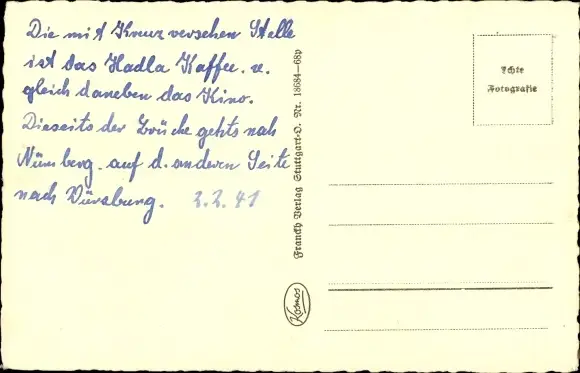 Die mit Kreuz versehen Stelle
ist das Hadla Kaffee. u.
gleich daneben das Kino.
Dieseits der Brücke gehts nah
Nürnberg. auf d. anderen Seite
nach Würzburg. 2.2.41
Franckh Verlag Stuttgart-O. Nr. 18684—68p
Kosmos
Echte
Fotografie